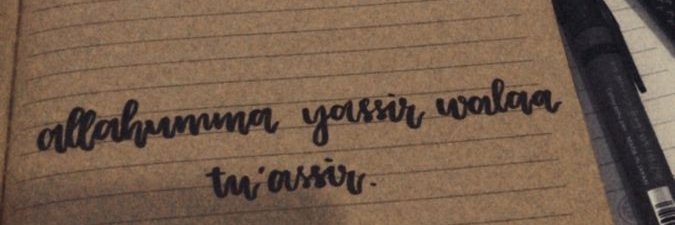 allahumma yassir walaa
tu'assir.